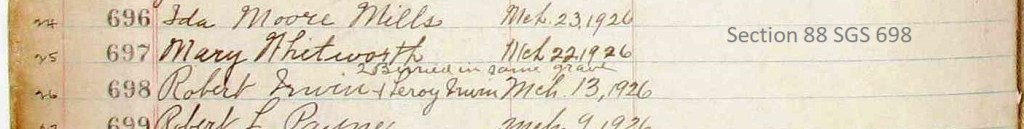 24 696 Ida Moore Mills Mch. 23, 1926
Section 88 SGS 698
25 697 Mary Whitworth Mch 22, 1926
2 Burried in same grave
26 698 Robert Irwin + Leroy Irwin Mch. 13, 1926
27 699 Robert L. Payne Mch 9, 1926